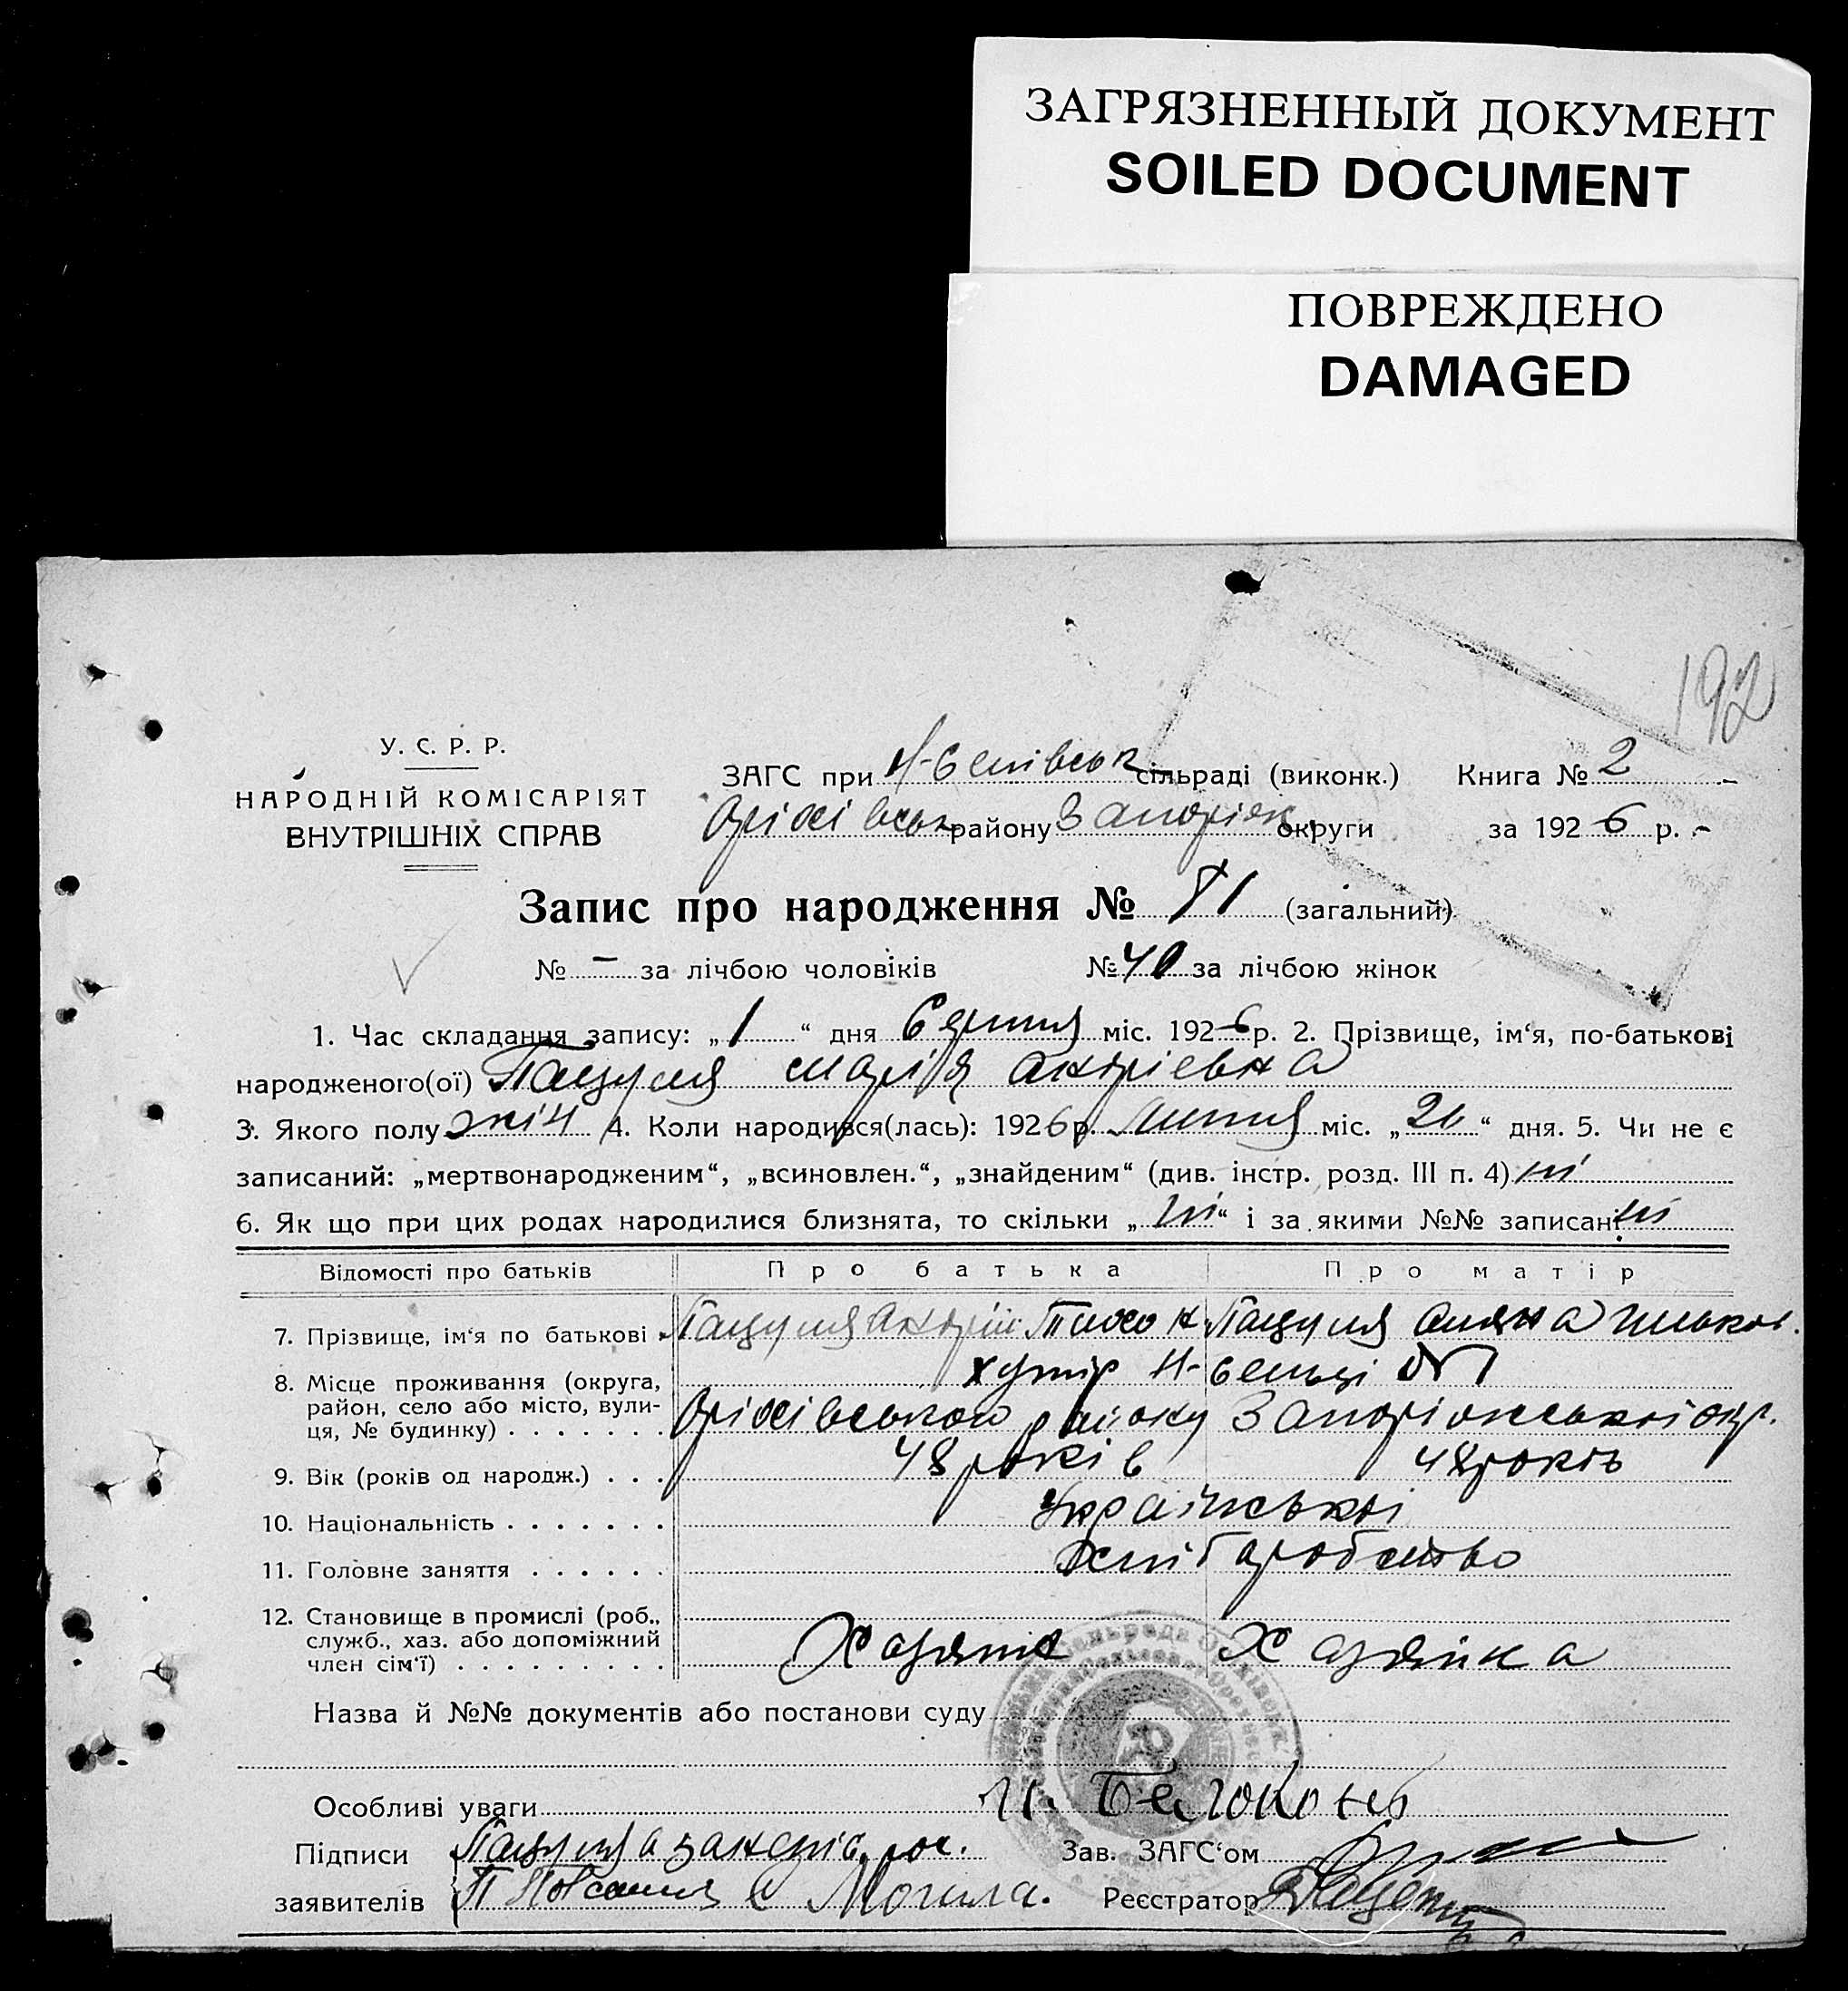 ЗАГРЯЗНЕННЫЙ ДОКУМЕНТ
SOILED DOCUMENT
ПОВРЕЖДЕНО
DAMAGED
192
У. С. Р. Р.
НАРОДНІЙ КОМІСАРІЯТ
ВНУТРІШНІХ СПРАВ
ЗАГС при сільраді (виконк.) Книга № 2
Оріхівськ району Запоріж. округи за 1926 р.
Запис про народження № (загальний)
№ - за лічбою чоловіків № 40 за лічбою жінок
1. Час складання запису: „1“ дня Серпня міс. 1926 р. 2. Прізвище, ім‘я, по-батькові
народженого(ої) Пацуля Марія Андріевна
3. Якого полу жін 4. Коли народився(лась): 1926 р. Липня міс. „ “ дня. 5. Чи не є
записаний: „мертвонародженим“, „всиновлен.“, „знайденим“ (див. інстр. розд. III п. 4) ні
6. Як що при цих родах народилися близнята, то скільки „ні“ і за якими №№ записані ні
Відомості про батьків Про батька Про матір
7. Прізвище, ім‘я по батькові Пацуля Андрій Тихон Пацуля
8. Місце проживання (округа, район, село або місто, вулиця, № будинку) хутір №1
Оріхівського району Запоріжської окр.
9. Вік (років од народж.) 48 років 48 років
10. Національність Українські
11. Головне заняття Хліборобство
12. Становище в промислі (роб., служб., хаз. або допоміжний член сім‘ї) Хазяїн Хазяйка
Назва й №№ документів або постанови суду
Особливі уваги
Підписи Пацуля Зав. ЗАГС‘ом
заявителів Могила. Реєстратор